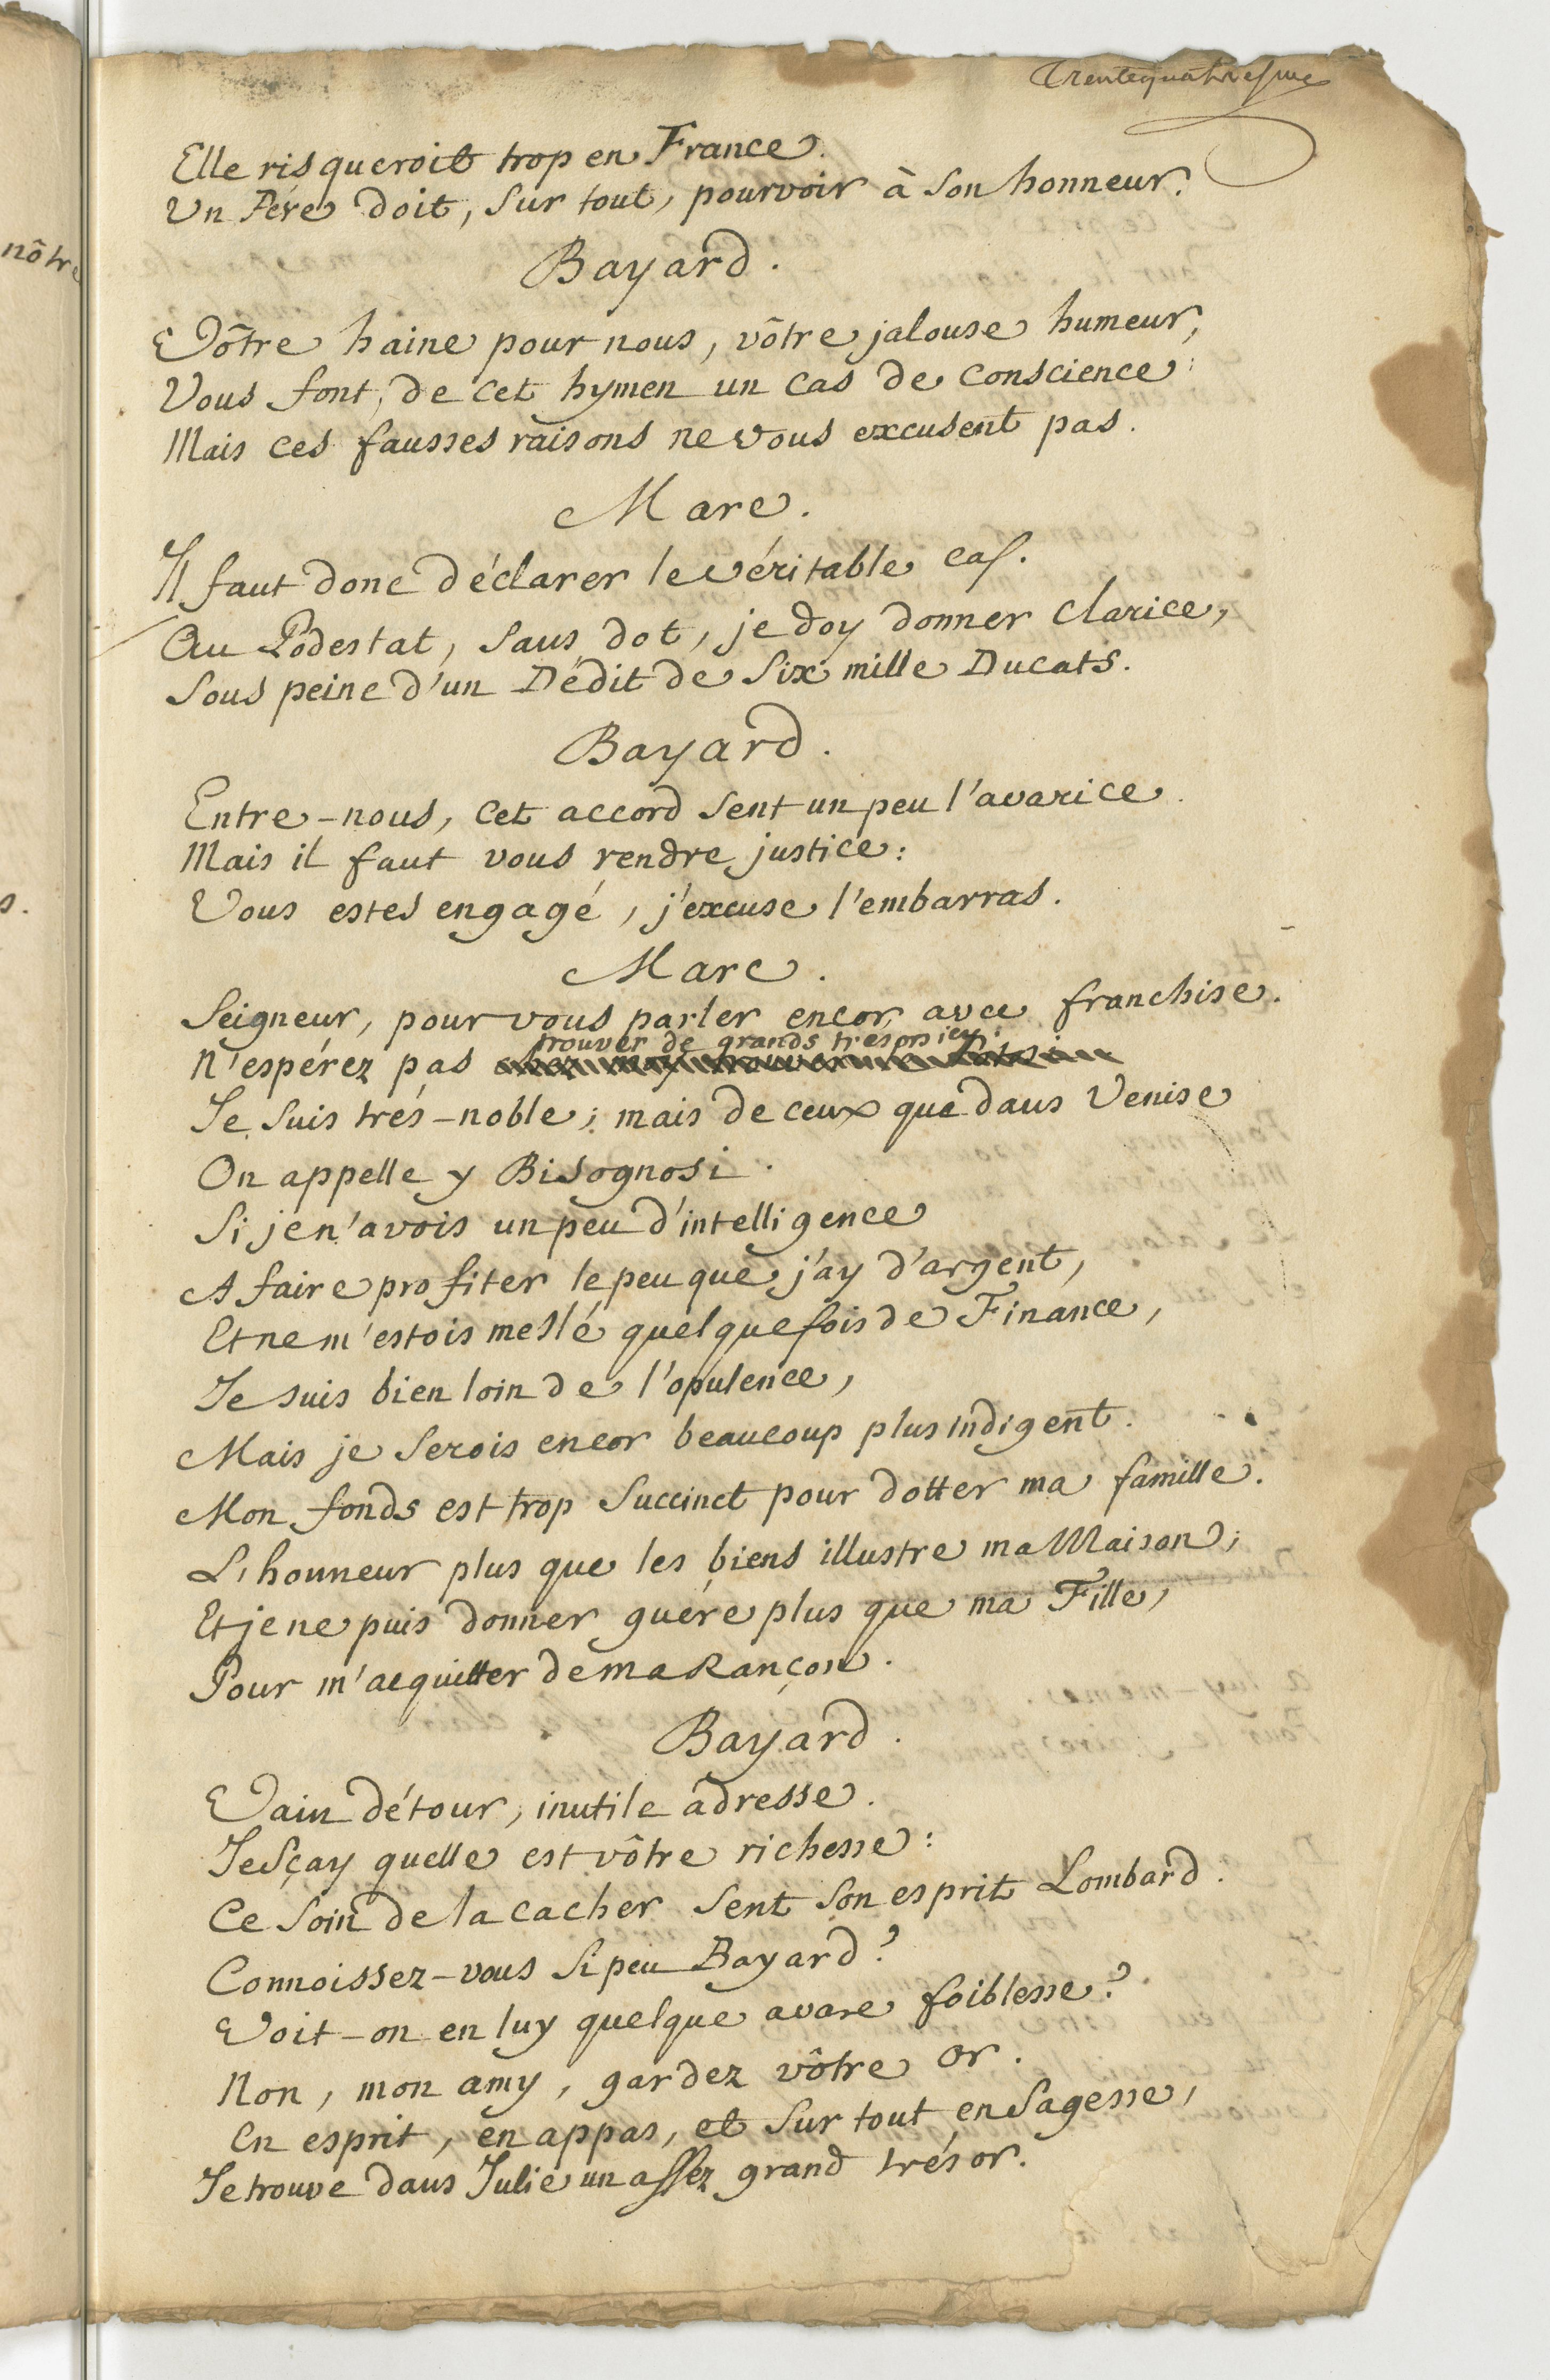 nôtre
s.
Trentequatresme
Elle risqueroit trop en France.
Un Pére doit, sur tout, pourvoir à son honneur.
Bayard.
Vôtre haine pour nous, vôtre jalouse humeur,
Vous font, de cet hymen un cas de conscience:
Mais ces fausses raisons ne vous excusent pas.
Marc.
Il faut donc déclarer le véritable cas.
Au Podestat, sans dot, je doy donner Clarice,
Sous peine d'un Dédit de six mille Ducats.
Bayard.
Entre-nous, cet accord sent un peu l'avarice.
Mais il faut vous rendre justice:
Vous estes engagé, j'excuse l'embarras.
Marc.
Seigneur, pour vous parler encor avec franchise.
trouver de grands tresors icy.
N'espérez pas
Je suis trés-noble; mais de ceux que dans Venise
On appelle y Bisognosi.
Si je n'avois un peu d'intelligence
A faire profiter le peu que j'ay d'argent,
Et ne m'estois meslé quelquefois de Finance,
Je suis bien loin de l'opulence,
Mais je serois encor beaucoup plus indigent.
Mon fonds est trop succinct pour dotter ma famille.
L'honneur plus que les biens illustre ma Maison;
Et je ne puis donner guére plus que ma Fille,
Pour m'acquitter de ma Rançon.
Bayard.
Vain détour, inutile adresse.
Je sçay quelle est vôtre richesse:
Ce soin de la cacher sent son esprit Lombard.
Connoissez-vous si peu Bayard?
Voit-on en luy quelque avare foiblesse?
Non, mon amy, gardez vôtre or.
En esprit, en appas, et sur tout en sagesse,
Je trouve dans Julie un assez grand trésor.